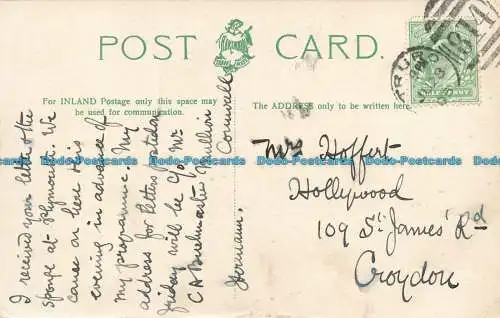 POST CARD.
For INLAND Postage only this space may
be used for communication.
The ADDRESS only to be written here.
I received your letter & the
sponge at Plymouth. We
came on here this
evening in advance of
my programme. My
address for letters posted on
Friday will be c/o Mr
CA
Mullion
Cornwall
Hermann.
Mrs Hoffert
Hollywood
109 St. James' Rd
Croydon
TRURO
HALF PENNY
Dodo-Postcards Dodo-Postcards Dodo-Postcards Dodo-Postcards Dodo-Postcards